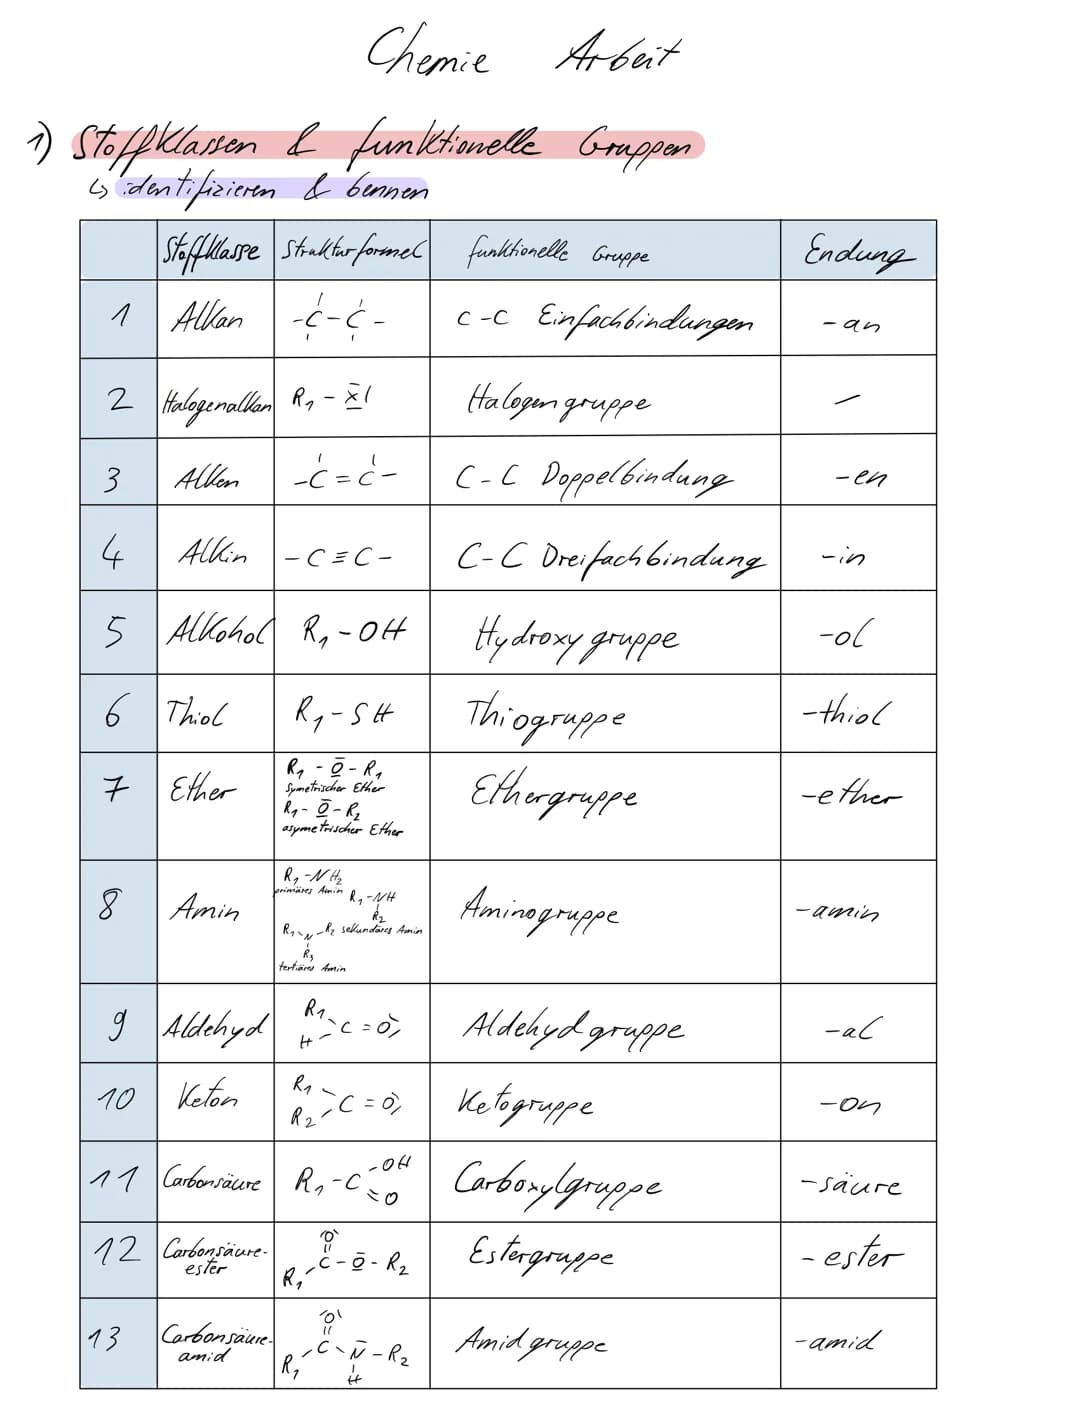 Chemie Arbeit
1) Stoffklassen & funktionelle Gruppen
↳ identifizieren & bennen
Stoffklasse Strukturformel funktionelle Gruppe Endung
1 Alkan -C-C- C-C Einfachbindungen -an
2 Halogenalkan R₁-X̲̅| Halogengruppe /
3 Alken -C=C- C-C Doppelbindung -en
4 Alkin -C≡C- C-C Dreifachbindung -in
5 Alkohol R₁-OH Hydroxygruppe -ol
6 Thiol R₁-SH Thiogruppe -thiol
7 Ether R₁-O̲̅-R₁ Ethergruppe -ether
Symetrischer Ether
R₁-O̲̅-R₂
asymetrischer Ether
8 Amin R₁-NH₂ Aminogruppe -amin
primäres Amin R₁-NH
R₂
R₁-N-R₂ sekundäres Amin
R₃
tertiäres Amin
9 Aldehyd R₁ H C=O Aldehydgruppe -al
10 Keton R₁ R₂ C=O Ketogruppe -on
11 Carbonsäure R₁-C -OH =O Carboxylgruppe -säure
12 Carbonsäure-ester O R₁ C-O̲̅-R₂ Estergruppe -ester
13 Carbonsäure-amid O R₁ C-N̅-R₂ H Amidgruppe -amid